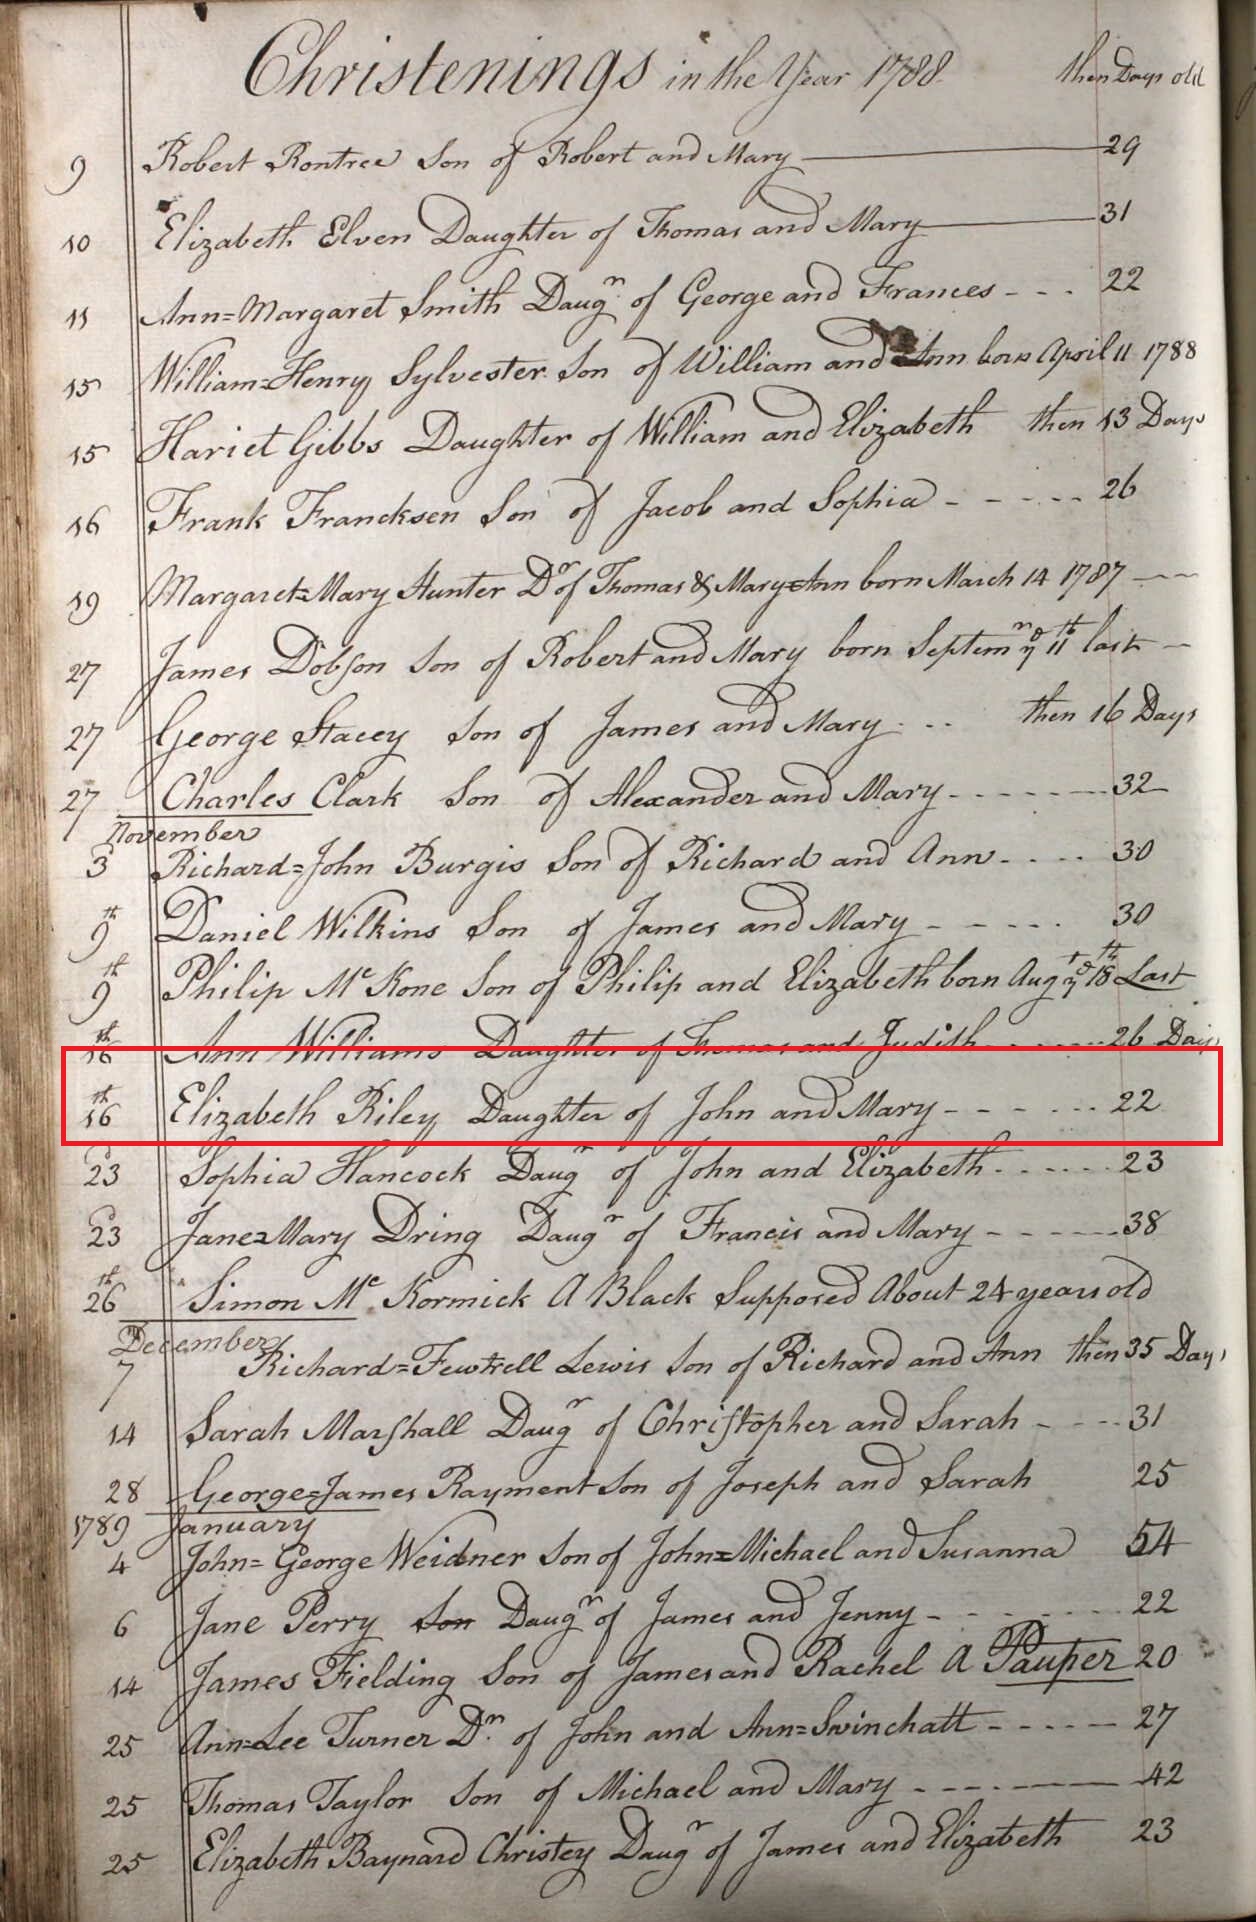 Christenings in the Year 1788 then Days old
9 Robert Rontree Son of Robert and Mary 29
10 Elizabeth Elven Daughter of Thomas and Mary 31
11 Ann=Margaret Smith Daugr. of George and Frances - - - 22
15 William=Henry Sylvester Son of William and Ann born April 11 1788
15 Hariet Gibbs Daughter of William and Elizabeth then 13 Days
16 Frank Francksen Son of Jacob and Sophia - - - - - 26
19 Margaret=Mary Hunter Dr of Thomas & Mary=Ann born March 14 1787
27 James Dobson Son of Robert and Mary born Septemr ye 11th last
27 George Stacey Son of James and Mary - - - then 16 Days
27 Charles Clark Son of Alexander and Mary - - - - - 32
November
3 Richard=John Burgis Son of Richard and Ann - - - - 30
9th Daniel Wilkins Son of James and Mary - - - - - 30
9th Philip Mc Kone Son of Philip and Elizabeth born Augt ye 18th Last
16th Ann Williams Daughter of Thomas and Judith - - - - - 26 Days
16th Elizabeth Riley Daughter of John and Mary - - - - - - 22
23d Sophia Hancock Daugr of John and Elizabeth - - - - - - 23
23d Jane=Mary Dring Daugr of Francis and Mary - - - - - 38
26th Simon Mc Kormick A Black Supposed About 24 years old
December
7 Richard=Fewtrell Lewis Son of Richard and Ann then 35 Days
14 Sarah Marshall Daugr of Christopher and Sarah - - - - 31
28 George=James Rayment Son of Joseph and Sarah 25
1789 January
4 John=George Weidner Son of John=Michael and Susanna 54
6 Jane Perry Son Daugr of James and Jenny - - - - - - 22
14 James Fielding Son of James and Rachel A Pauper 20
25 Ann=Lee Turner Dr. of John and Ann=Swinchatt - - - - - 27
25 Thomas Taylor Son of Michael and Mary - - - - 42
25 Elizabeth Baynard Christey Daugr of James and Elizabeth 23